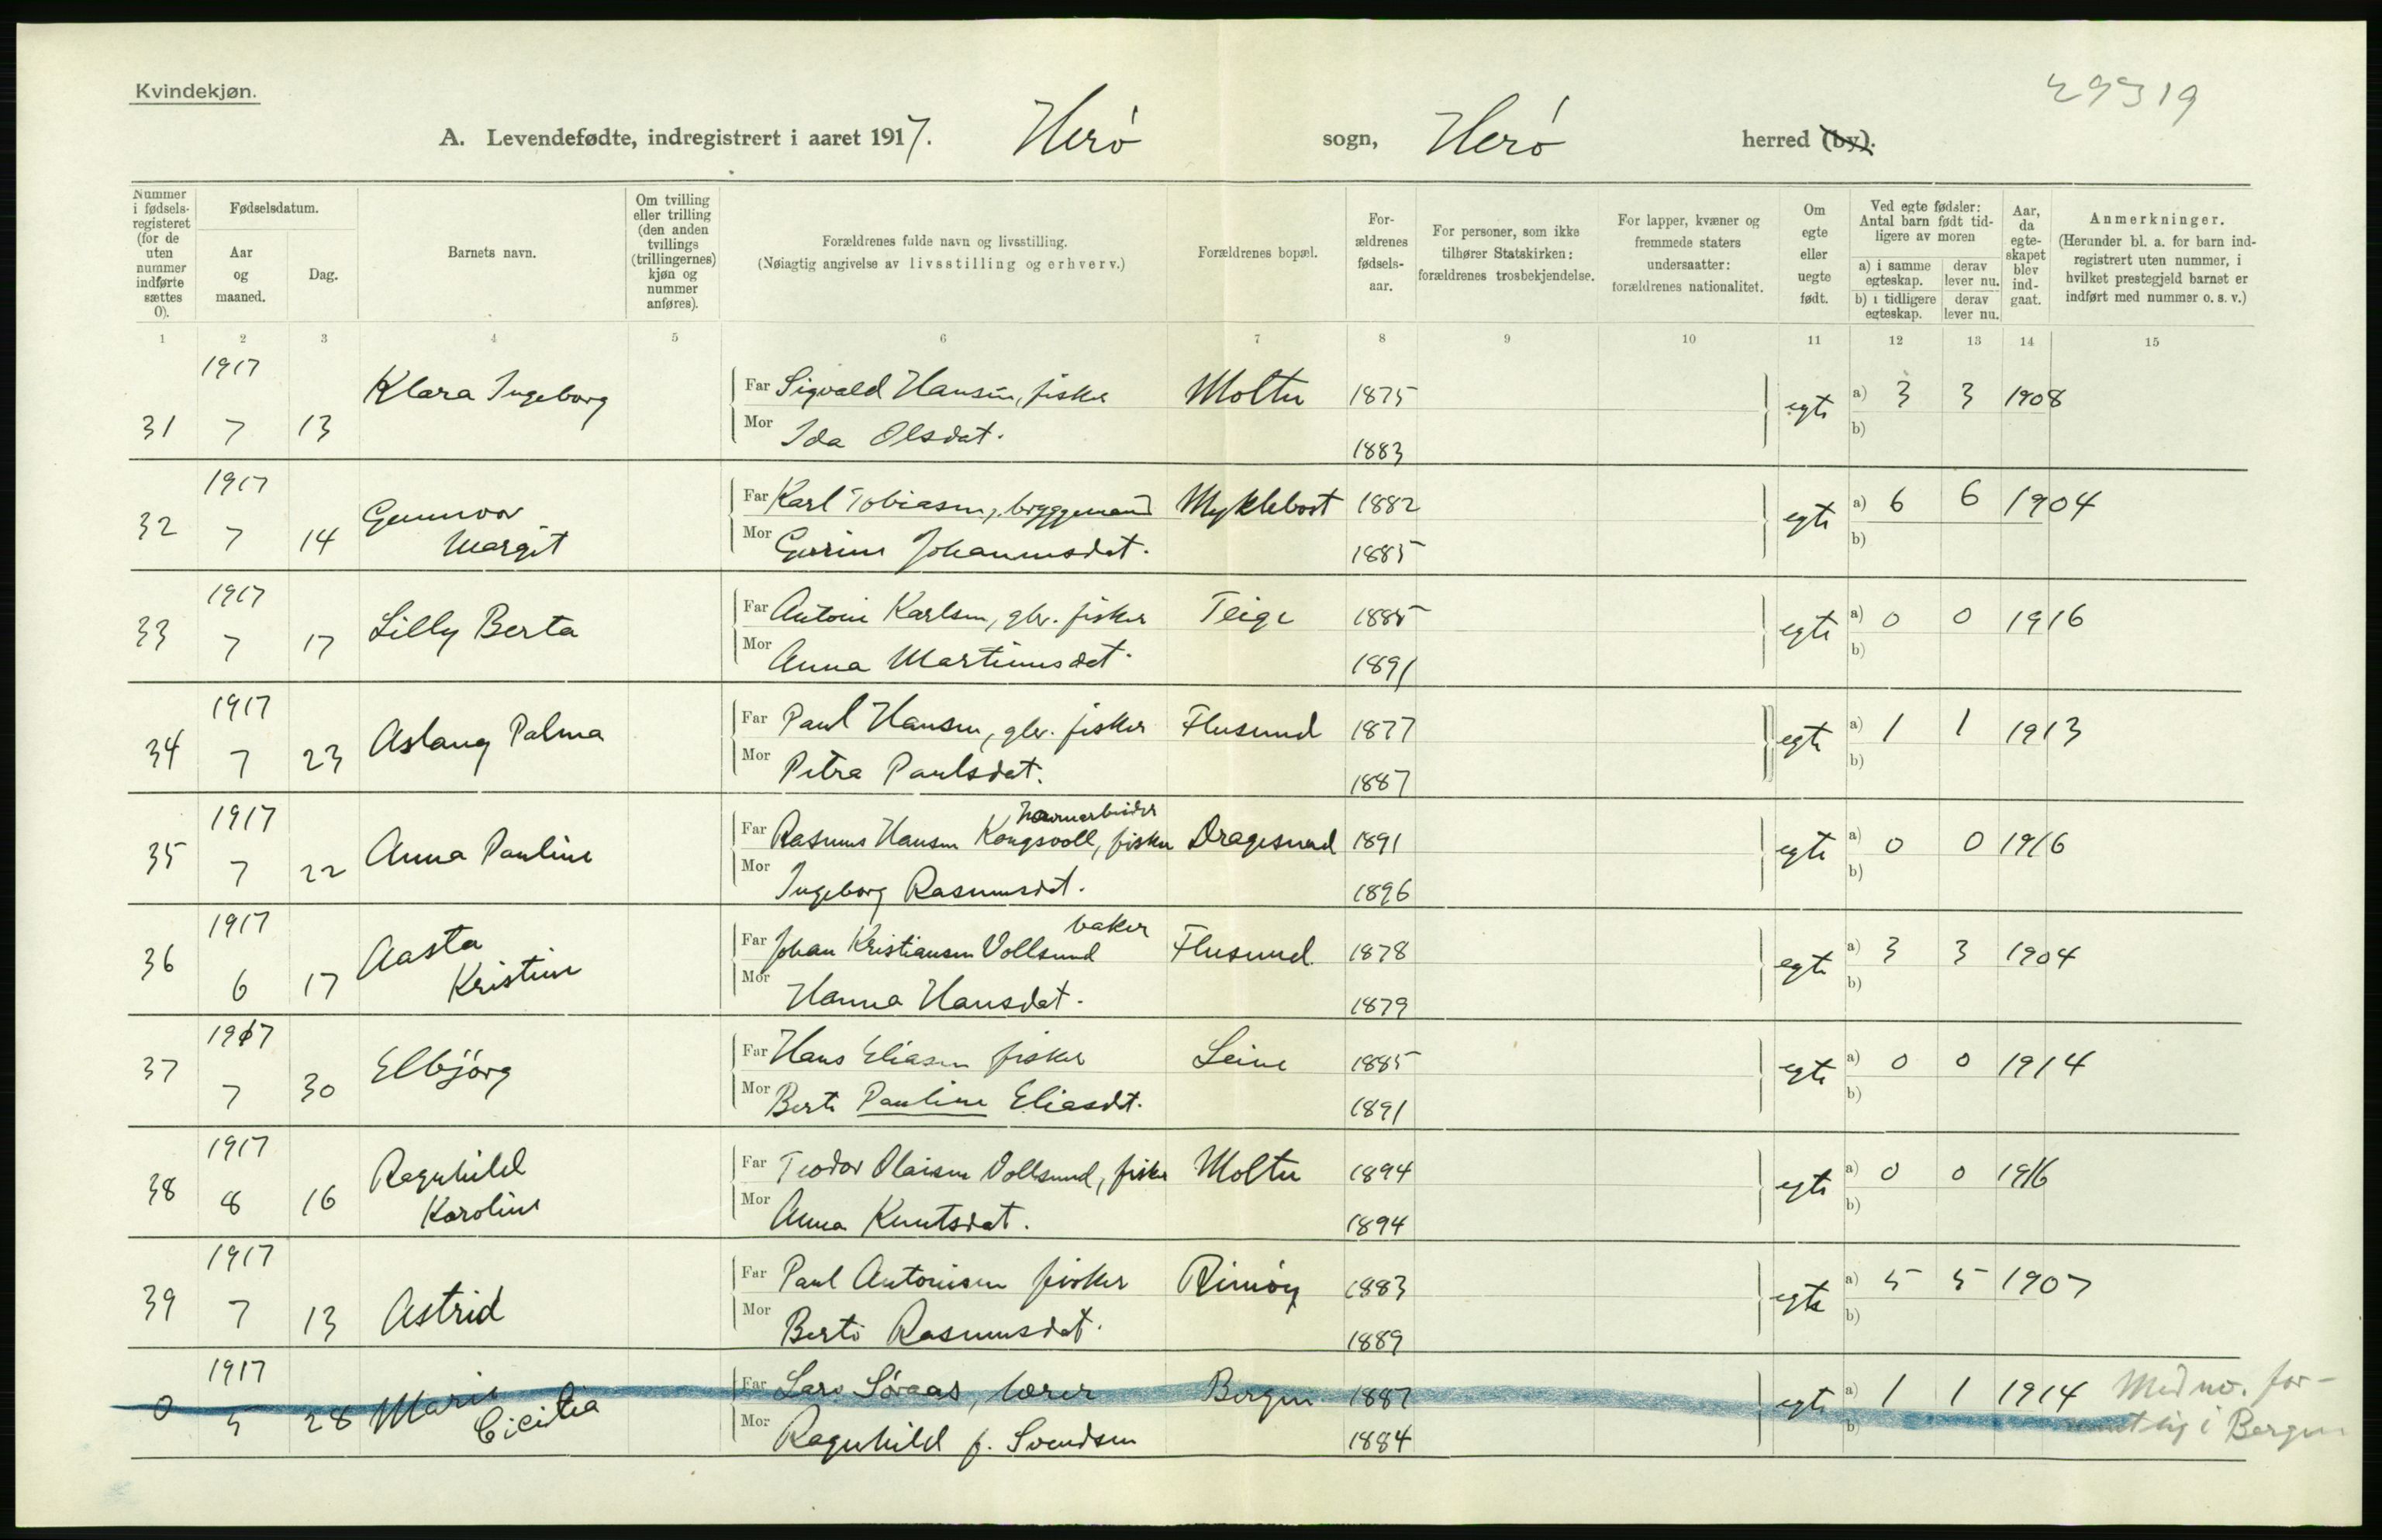 Kvindekjøn.
29319
A. Levendefødte, indregistrert i aaret 1917. Herø sogn, Herø herred (by).
Nummer i fødsels-registeret (for de uten nummer indførte sættes 0).
Fødselsdatum.
Aar og maaned.
Dag.
Barnets navn.
Om tvilling eller trilling (den anden tvillings (trillingernes) kjøn og nummer anføres).
Forældrenes fulde navn og livsstilling.
(Nøiagtig angivelse av livsstilling og erhverv.)
Forældrenes bopæl.
For-ældrenes fødsels-aar.
For personer, som ikke tilhører Statskirken: forældrenes trosbekjendelse.
For lapper, kvæner og fremmede staters undersaatter: forældrenes nationalitet.
Om egte eller uegte født.
Ved egte fødsler: Antal barn født tid-ligere av moren
a) i samme egteskap.
derav lever nu.
b) i tidligere egteskap.
derav lever nu.
Aar, da egte-skapet blev ind-gaat.
Anmerkninger.
(Herunder bl. a. for barn ind-registrert uten nummer, i hvilket prestegjeld barnet er indført med nummer o. s. v.)
1 2 3 4 5 6 7 8 9 10 11 12 13 14 15
1917
31 7 13 Klara Ingeborg Far Sigvald Hansen, fisker Moltu 1875 egte a) 3 3 1908
Mor Ida Olsdat. 1883 b)
1917
32 7 14 Gunnvor Margit Far Karl Tobiasen, bryggemand Myklebost 1882 egte a) 6 6 1904
Mor Gurine Johannesdat. 1885 b)
1917
33 7 17 Lilly Berta Far Antoni Karlsen, gbr. fisker Teige 1885 egte a) 0 0 1916
Mor Anna Martinusdat. 1891 b)
1917
34 7 23 Aslaug Palma Far Paul Hansen, gbr. fisker Flusund 1877 egte a) 1 1 1913
Mor Petra Paulsdat. 1887 b)
1917 havnarbeider
35 7 22 Anna Pauline Far Rasmus Hansen Kongsvoll, fisker Dragesund 1891 egte a) 0 0 1916
Mor Ingeborg Rasmusdat. 1896 b)
1917 baker
36 6 17 Aasta Kristine Far Johan Kristiansen Vollsund Flusund 1878 egte a) 3 3 1904
Mor Hanna Hansdat. 1879 b)
1917
37 7 30 Elbjørg Far Hans Eliasen fisker Leine 1885 egte a) 0 0 1914
Mor Berte Pauline Eliasdt. 1891 b)
1917
38 8 16 Ragnhild Karoline Far Teodor Olaisen Vollsund, fisker Moltu 1894 egte a) 0 0 1916
Mor Anna Knutsdat. 1894 b)
1917
39 7 13 Astrid Far Paul Antonisen fisker Rimøy 1883 egte a) 5 5 1907
Mor Berte Rasmusdat. 1889 b)
1917
0 5 28 Marie Cicilia Far Lars Søraas, lærer Bergen 1887 egte a) 1 1 1914 Med no. for-
Mor Ragnhild f. Svendsen 1884 b) mentlig i Bergen